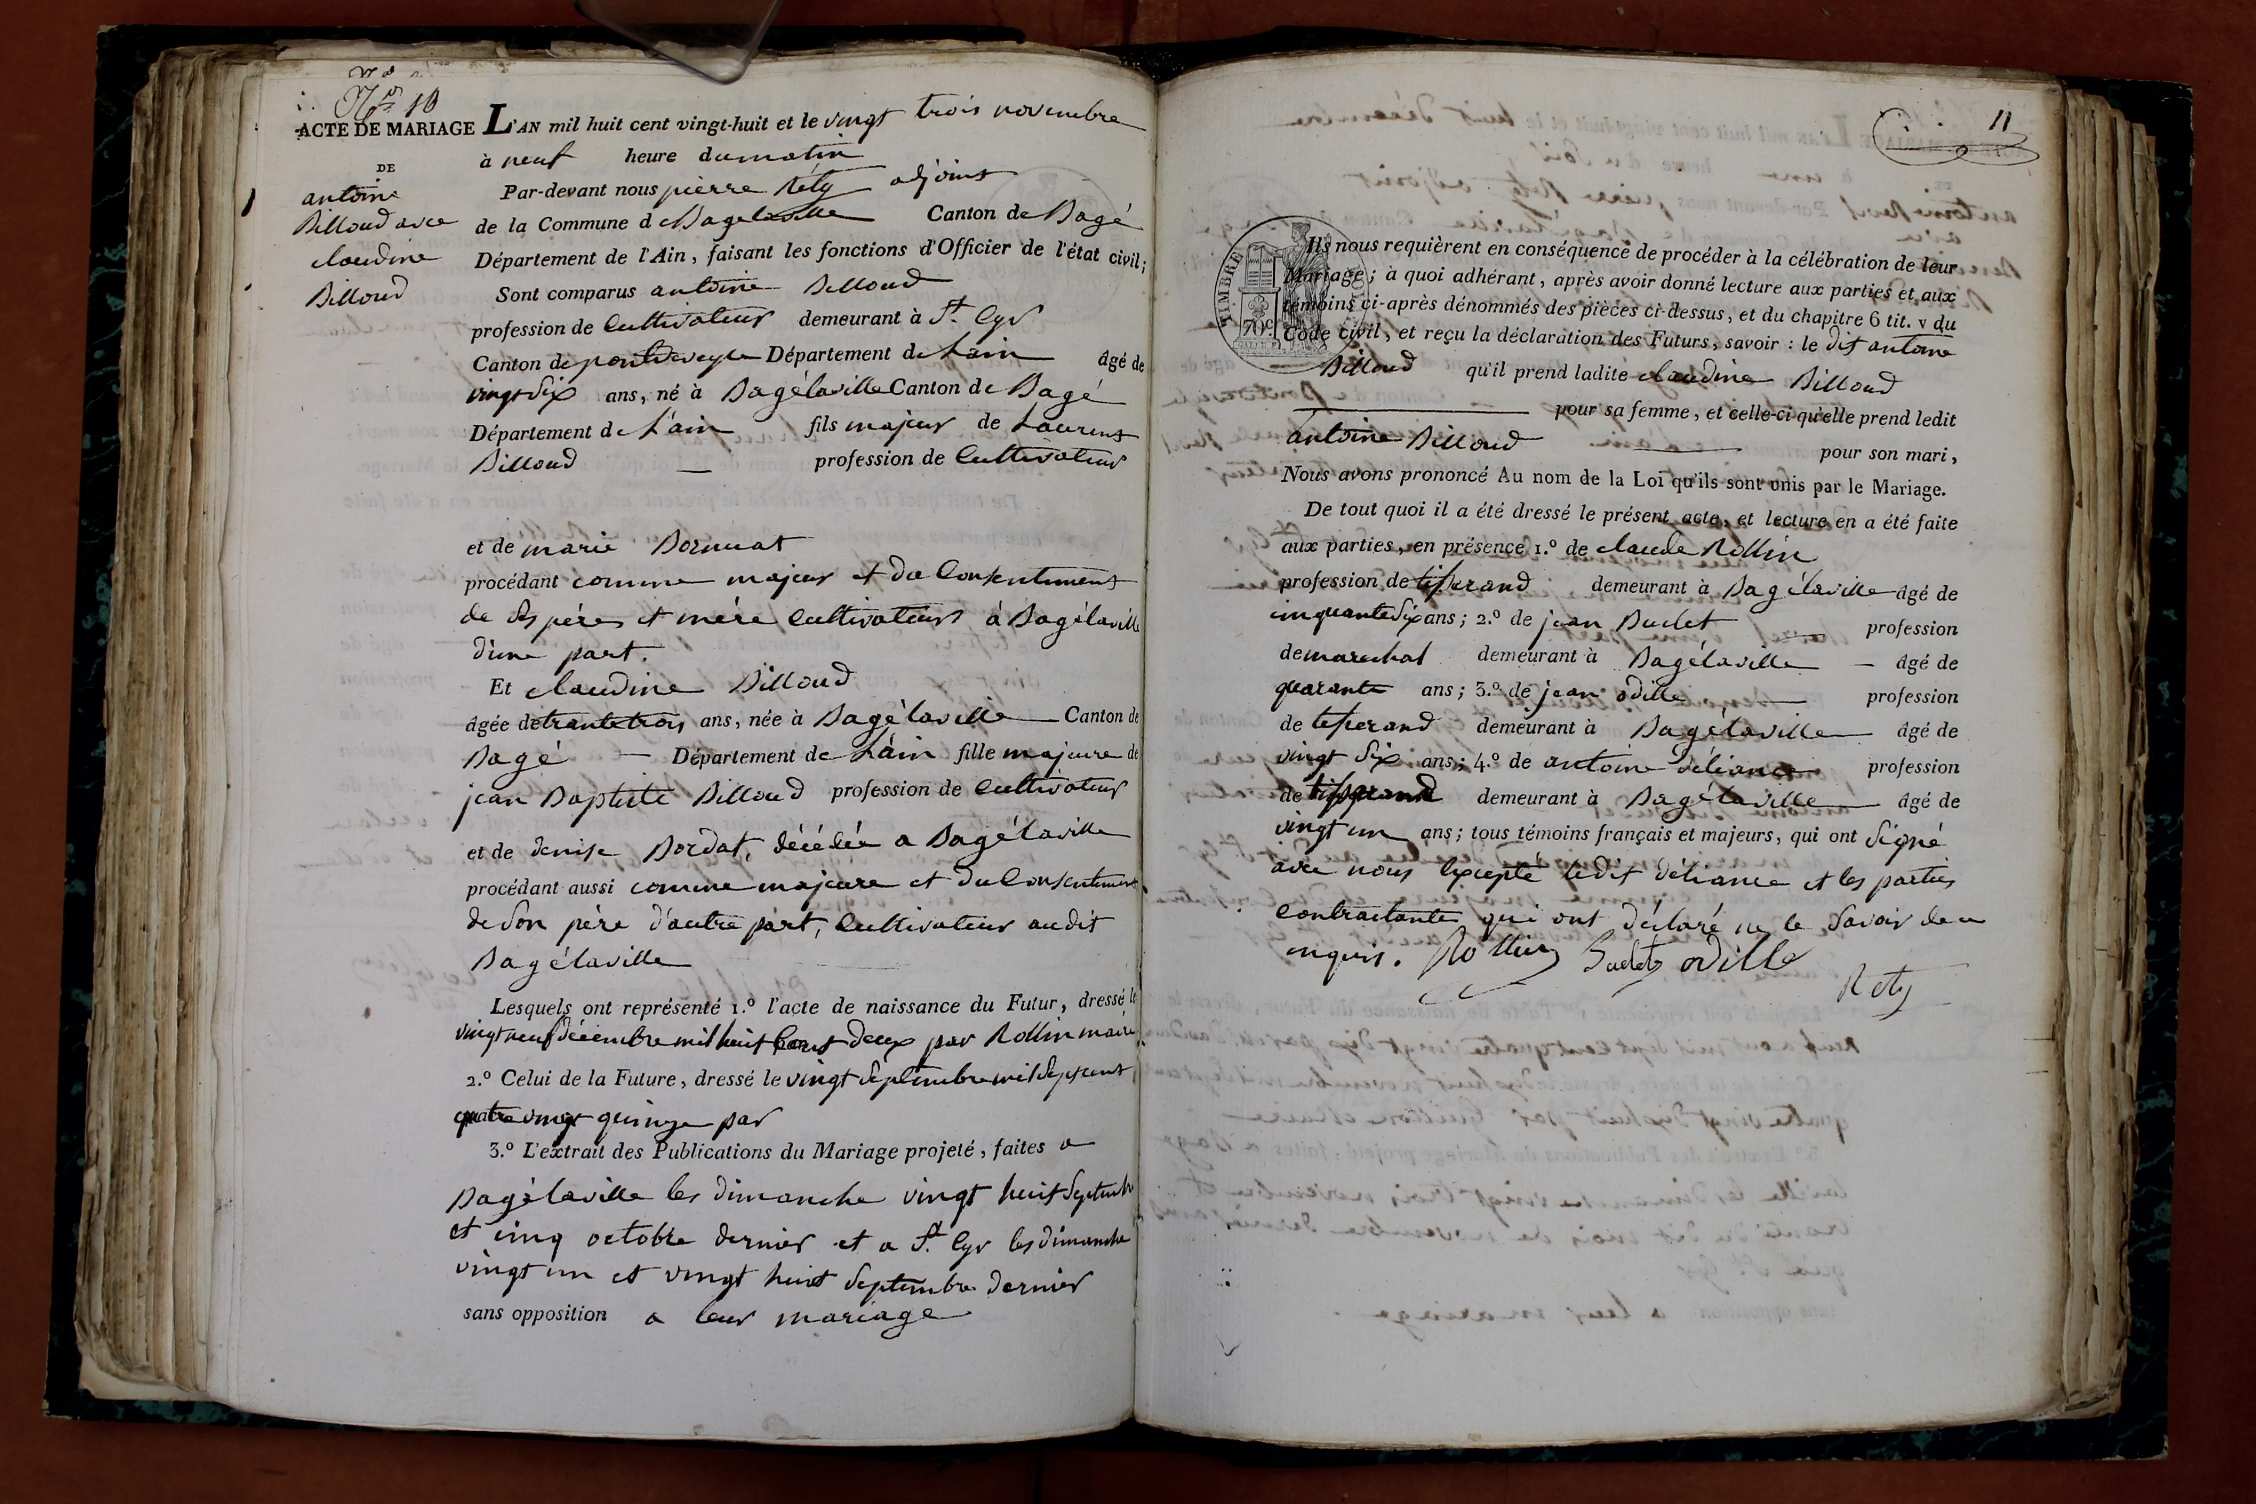 No 10
ACTE DE MARIAGE
DE
antoine
Billoud avec
claudine
Billoud
L'AN mil huit cent vingt-huit et le vingt trois novembre
à neuf heure du matin
Par-devant nous pierre Rety adjoint
de la Commune de Bagélaville Canton de Bagé
Département de l'Ain, faisant les fonctions d'Officier de l'état civil;
Sont comparus antoine Billoud
profession de Cultivateur demeurant à St. Cyr
Canton de pontdeveyle Département de Lain âgé de
vingt six ans, né à Bagélaville Canton de Bagé
Département de L'ain fils majeur de Laurent
Billoud — profession de Cultivateur
et de marie
procédant comme majeur et du Consentement
de Ses pére et mére Cultivateurs à Bagélaville
d'une part.
Et claudine Billoud
âgée de trante trois ans, née à Bagélaville Canton de
Bagé — Département de Lain fille majeure de
jean Baptiste Billoud profession de Cultivateur
et de denise Bordat, décédée a Bagélaville
procédant aussi comme majeure et du Consentement
de Son pére d'autre part, Cultivateur audit
Bagélaville
Lesquels ont représenté 1.º l'acte de naissance du Futur, dressé le
vingt neuf décembre mil huit Cent deux par Rollin maire
2.º Celui de la Future, dressé le vingt Septembre mil Sept cent
quatre vingt quinze par
3.º L'extrait des Publications du Mariage projeté, faites a
Bagélaville les dimanche vingt huit Septembre
et cinq octobre dernier et a St. Cyr les dimanche
vingt un et vingt huit Septembre dernier
sans opposition a leur mariage
11
TIMBRE
70 c
Ils nous requièrent en conséquence de procéder à la célébration de leur
Mariage; à quoi adhérant, après avoir donné lecture aux parties et aux
témoins ci-après dénommés des pièces ci-dessus, et du chapitre 6 tit. v du
Code civil, et reçu la déclaration des Futurs, savoir : le dit antoine
Billoud qu'il prend ladite claudine Billoud
pour sa femme, et celle-ci qu'elle prend ledit
antoine Billoud pour son mari,
Nous avons prononcé Au nom de la Loi qu'ils sont unis par le Mariage.
De tout quoi il a été dressé le présent acte, et lecture en a été faite
aux parties, en présence 1.º de claude Rollin
profession de tisserand demeurant à Bagélaville âgé de
cinquante Six ans; 2.º de jean Buclet profession
de marechal demeurant à Bagélaville — âgé de
quarante ans; 3.º de jean odille profession
de tesserand demeurant à Bagélaville âgé de
vingt Six ans; 4.º de antoine déliance profession
de tisserand demeurant à Bagélaville âgé de
vingt un ans; tous témoins français et majeurs, qui ont Signé
avec nous Excepté ledit déliance et les parties
Contractante qui ont déclaré ne le Savoir de ce
inquis. Rollin Buclet odille
Rety